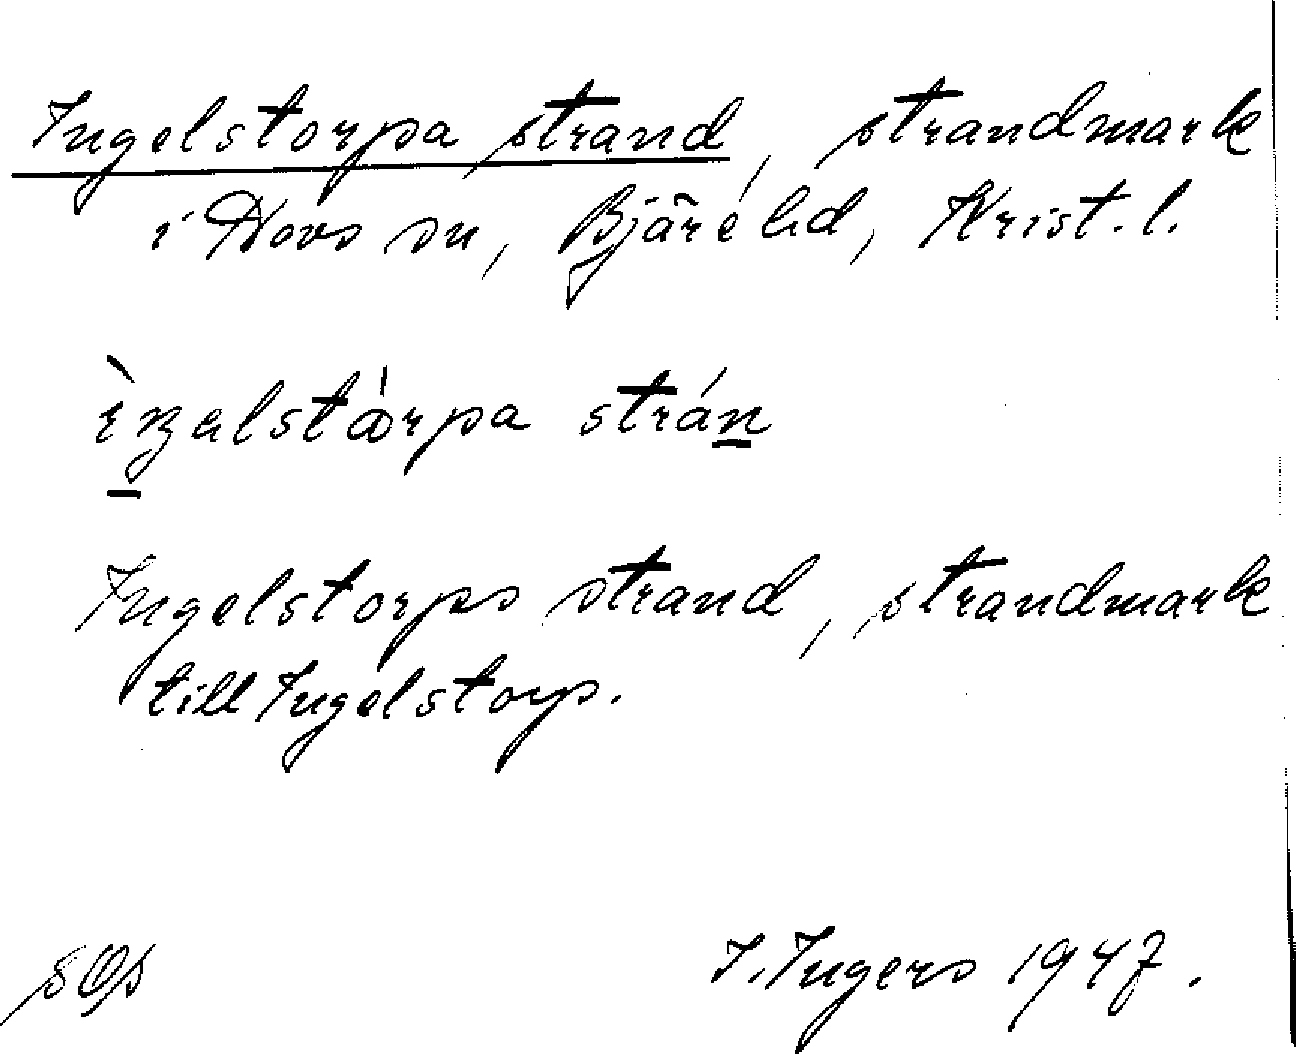 Ingelstorpa strand, strandmark
i Hovs sn, Bjäre hd, Krist. l.
strán
Ingelstorps strand, strandmark
till Ingelstorp.
I. Ingers 1947.